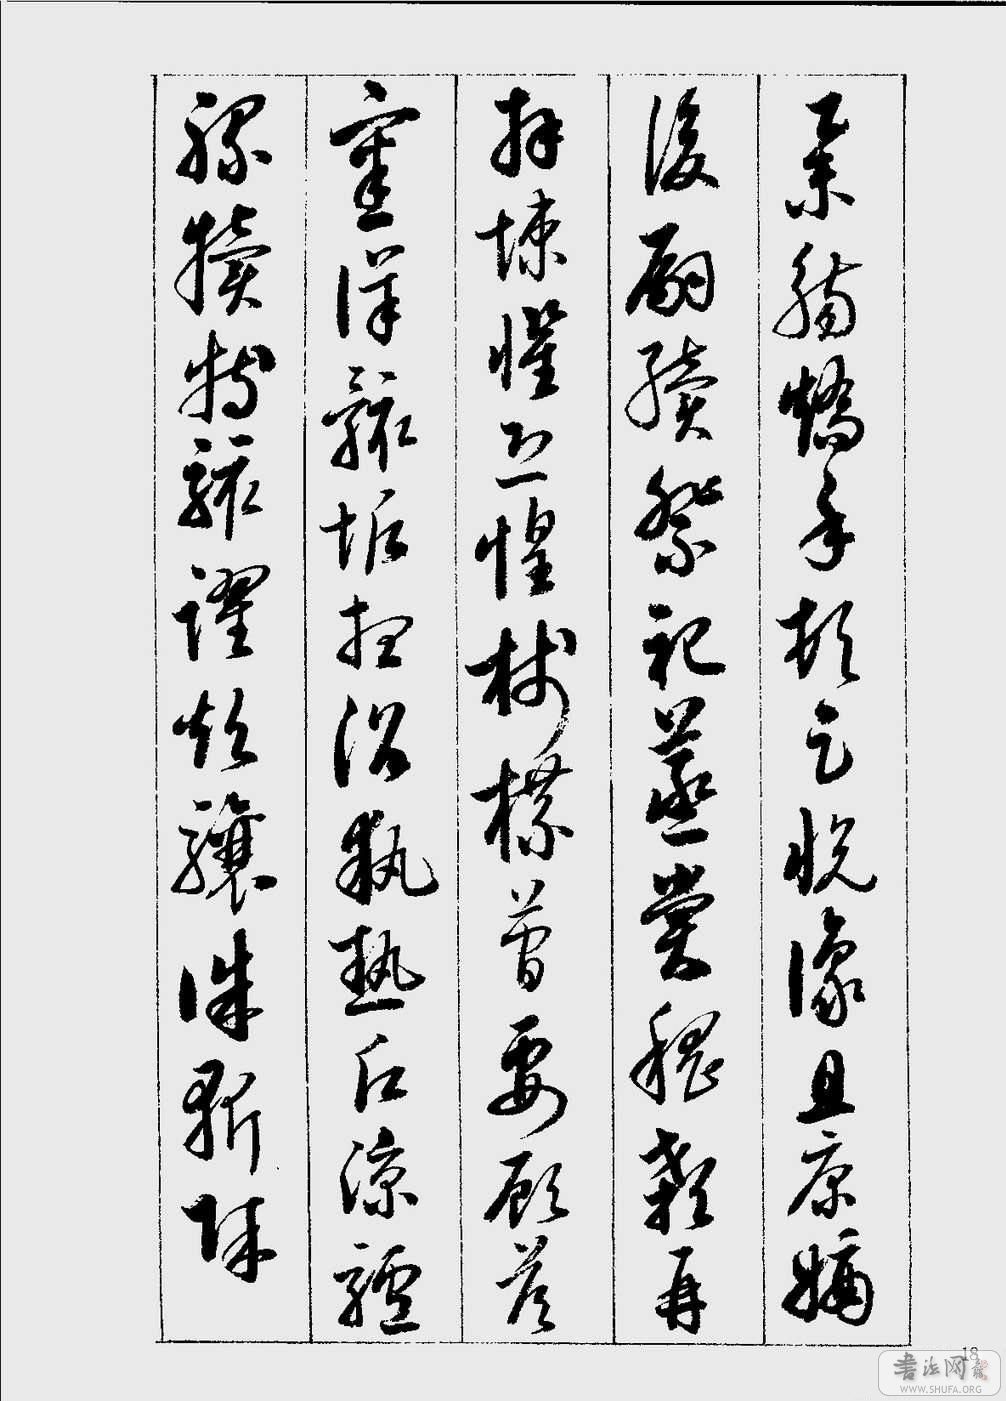 舉觴矯手頓足悅豫且康嫡
後嗣續祭祀蒸嘗稽顙再
拜悚懼恐惶牋牒簡要顧答
審詳骸垢想浴執熱願涼驢
騾犢特駭躍超驤誅斬賊
18
書法网
WWW.SHUFA.ORG